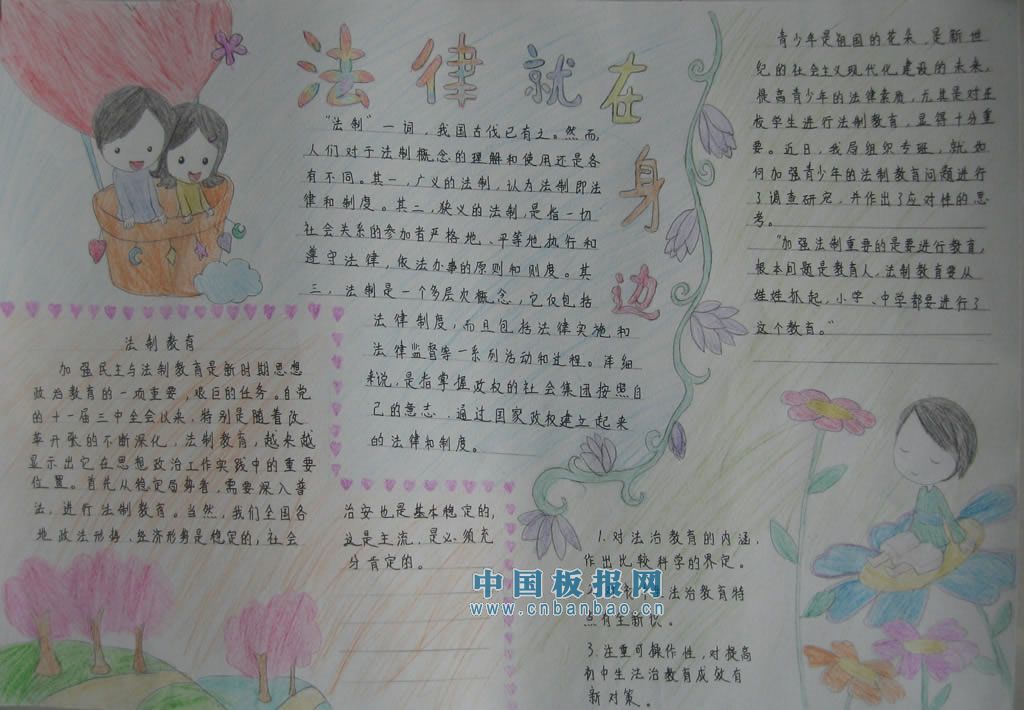 法律就在身边
“法制”一词，我国古代已有之。然而，
人们对于法制概念的理解和使用还是各
有不同。其一，广义的法制，认为法制即法
律和制度。其二，狭义的法制，是指一切
社会关系的参加者严格地、平等地执行和
遵守法律，依法办事的原则和制度。其
三，法制是一个多层次概念，它仅包括
法律制度，而且包括法律实施和
法律监督等一系列活动和过程。详细
来说，是指掌握政权的社会集团按照自
己的意志、通过国家政权建立起来
的法律和制度。
法制教育
加强民主与法制教育是新时期思想
政治教育的一项重要，艰巨的任务。自党
的十一届三中全会以来，特别是随着改
革开放的不断深化，法制教育，越来越
显示出它在思想政治工作实践中的重要
位置。首先从稳定局势看，需要深入普
法，进行法制教育。当然，我们全国各
地政法形势、经济形势是稳定的，社会
治安也是基本稳定的，
这是主流，是必须充
分肯定的。
青少年是祖国的花朵，是新世
纪的社会主义现代化建设的未来，
提高青少年的法律素质，尤其是对在
校学生进行法制教育，显得十分重
要。近日，我局组织专班，就如
何加强青少年的法制教育问题进行
了调查研究，并作出了应对性的思
考。
“加强法制重要的是要进行教育，
根本问题是教育人，法制教育要从
娃娃抓起，小学、中学都要进行了
这个教育。”
1. 对法治教育的内涵，
作出比较科学的界定。
法治教育特
点有全新
3. 注重可操作性，对提高
初中生法治教育成效有
新对策。
中国板报网
www.cnbanbao.cn